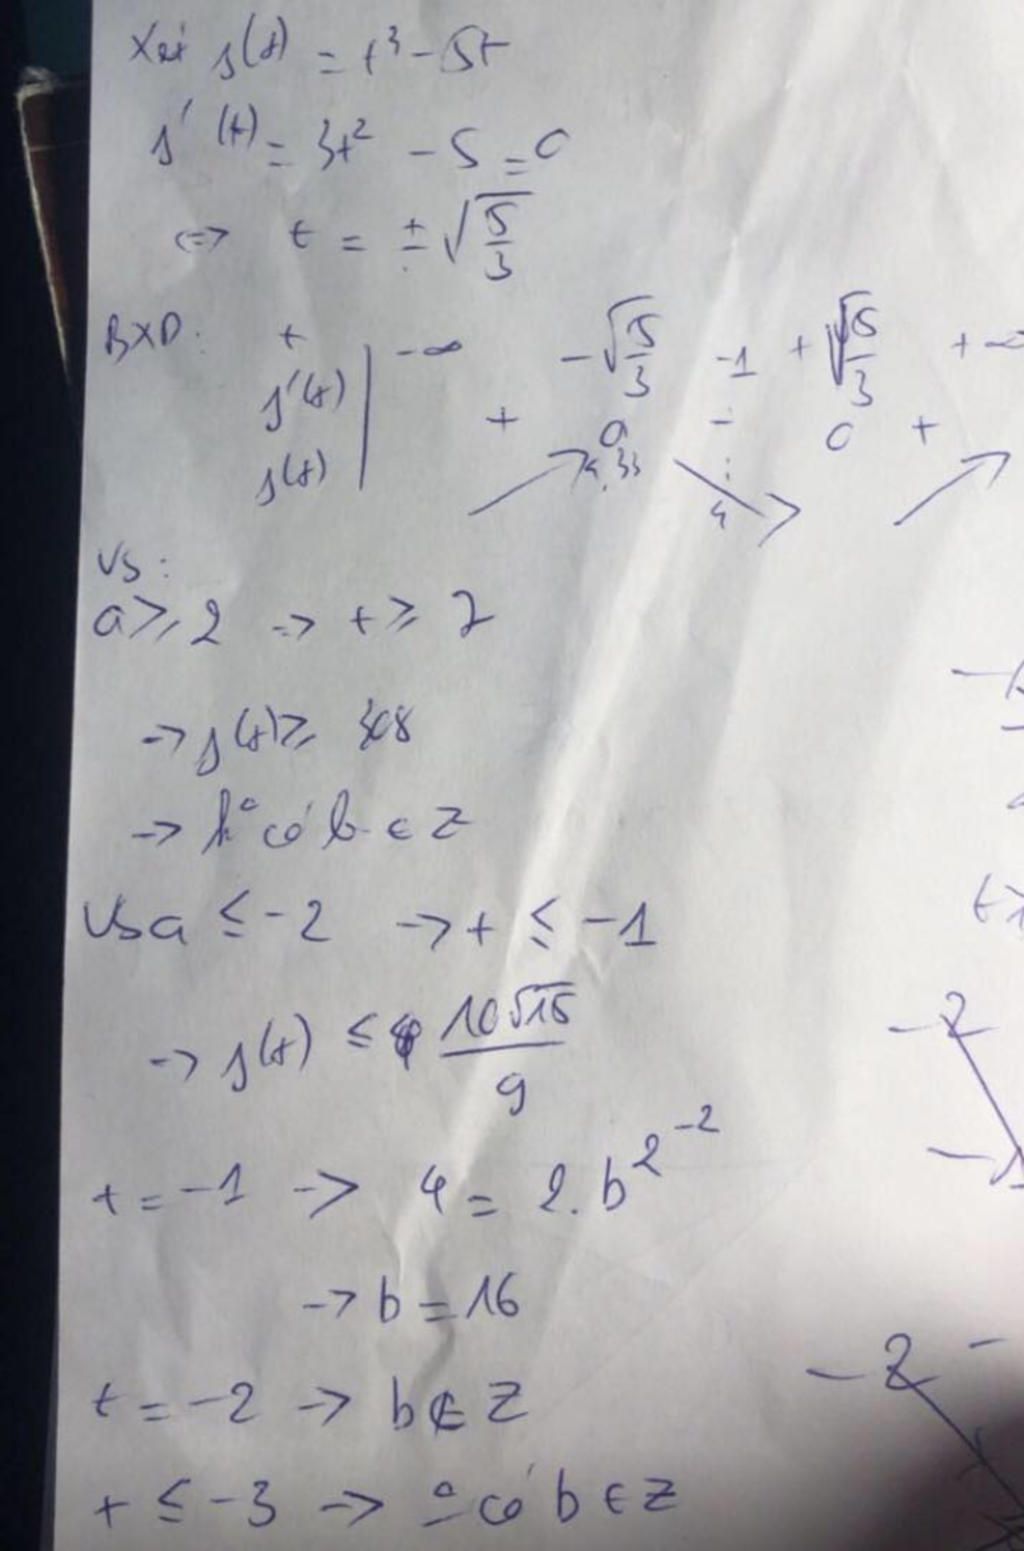 Xét f(t) = t³ - 5t
f'(t) = 3t² - 5 = 0
⇔ t = ±√(5/3)
BXD: t | -∞ -√(5/3) -1 +√(5/3) +∞
f'(t) | + 0 - 0 +
f(t) | ↗ 4,33 ↘ 4 ↗
Với:
a ≥ 2 → t ≥ 7
→ f(t) ≥ 308
→ k° có b ∈ Z
Với a ≤ -2 → t ≤ -1
→ f(t) ≤ 10√15/9
t = -1 → 4 = 2.b^2^-2
→ b = 16
t = -2 → b ∉ Z
t ≤ -3 → ° có b ∈ Z
-2
-2 -